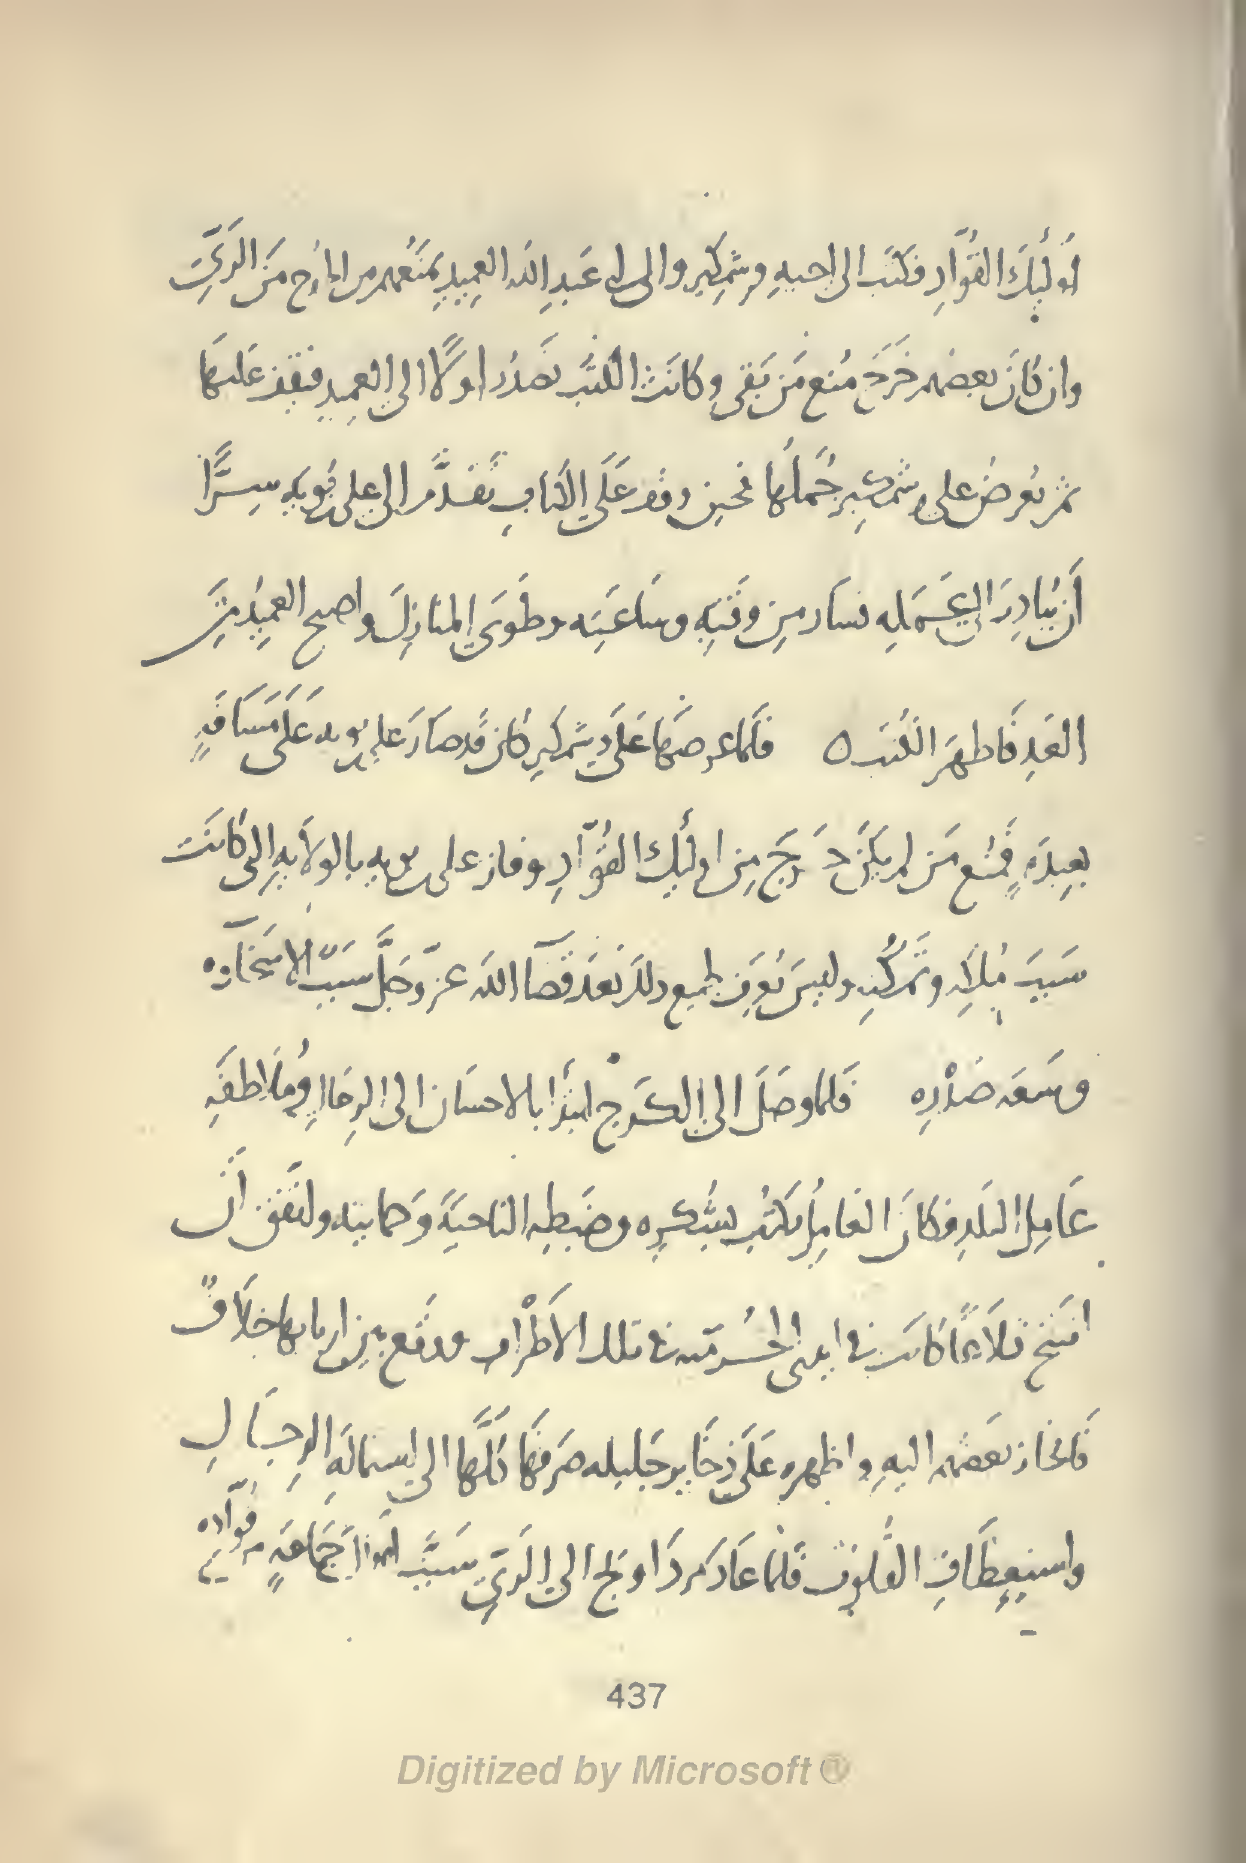 أُولئِكَ القُوّادِ فكتَبَ الى اخيهِ وشمكير والى ابي عَبدِ الله العَمِيدِ بمَنْعِهِم من الخارج مَنَ الرَّيِّ
وان كَانَ بعضهم خَرَجَ مُنع مَن بَقى وكانَت الكتُبُ تصَدُر اولًا الى العميدِ فيقف عَليهَا
ثم تُعرَضُ على وشمكير جُمَلُهَا فحين وقف عَلَى الكتاب تَقدَّم الى على بن بُويَه سِرًّا
أَن يُبَادِرَ الى عَمَلِه فسَار مِن وقتِه وسَاعَتِه وطَوَى المنازلَ واصبح العَمِيدُ مِنَ
الغَدِ فَاظهَر الكتُبَ ٥ فَلَما عرضَهَا عَلَى وشمكير كانَ قَد صَارَ علي بن بويه عَلَى مَسَافَةٍ
بعِيدَةٍ فمُنِع مَن لم يكن خَرَجَ مِن اولئِك القُوّادِ وفاز على بن بويه بالولايةِ التي كانَت
سَبَبَ مُلكِه وتمَكُّنِه وليسَ يُعرَف لجميع ذلك بَعدَ قضآ اللّه عزّ وجَلَّ سَبَبٌ الا سَخَاؤه
وسَعَة صَدْرِه فلمَا وصَلَ الى الكَرَج ابتدَأ بالاحسَان الى الرِجَال ومُلاطفَةِ
عَامِل البَلَدِ فكانَ العَامِلُ يَكتُب بشُكرِه وضَبطِه الناحيَةَ وحمايته واتفَق أَن
افتَتح قلاعًا كانَت في ايدى الخُرّميّة في تلك الأطْرَاف ووقَع بين اربابها خلافٌ
فَانحَاز بعَضهُم اليهِ واظهره عَلَى ذخَايرَ جَليله صَرَفَهَا كُلَّهَا الى استمالَةِ الرِجَال
واستِعطَافِ القُلوب فلمّا عَاد مرداويج الى الرَيّ سَبَّبَ لهؤلاءِ جمَاعَةٍ من قُوّاده
437
Digitized by Microsoft ®